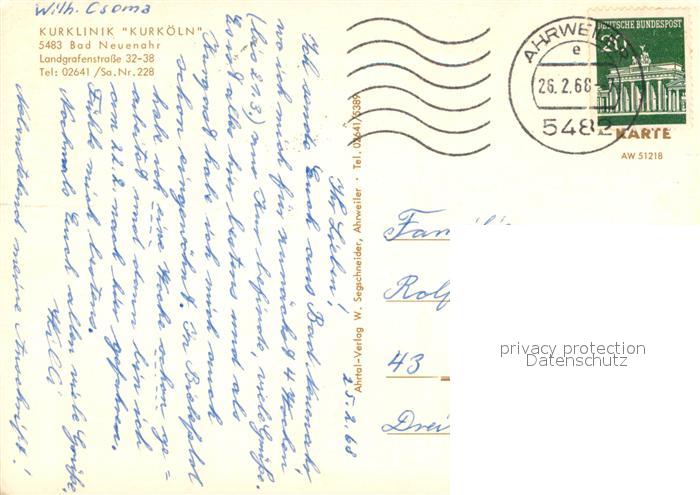 Wilh. Csoma
KURKLINIK "KURKÖLN"
5483 Bad Neuenahr
Landgrafenstraße 32-38
Tel: 02641 /Sa.Nr. 228
25.2.68
Ihr Lieben!
Ich sende Euch aus Bad Neuenahr
wo ich mich für zunächst 4 Wochen
(bis 21.3.) zur Kur befinde, viele Grüße.
Es ist alles hier bestens und als
Kurgast habe ich mich auch
schon eingewöhnt. In Bielefeld
habe ich eine Woche schon ge=
arbeitet und dann bin ich
am 22.2. nach hier gefahren.
Fühle mich bestens.
Nochmals Euch allen viele Grüße,
Willi
Umstehend meine Anschrift!
Ahrtal-Verlag W. Segschneider, Ahrweiler · Tel. 02641/5389
DEUTSCHE BUNDESPOST
20
AHRWEILER
e
26.2.68
5482
KARTE
AW 51218
Familie
Rolf
43
Drei
privacy protection
Datenschutz